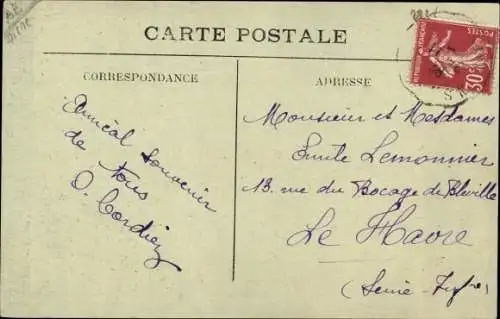 CARTE POSTALE
CORRESPONDANCE
ADRESSE
Amical souvenir
de tous
O. Cordier
Monsieur et Mesdames
Emile Lemonnier
13. rue du Bocage de Bléville
Le Havre
(Seine-Infre)
POSTES
30c